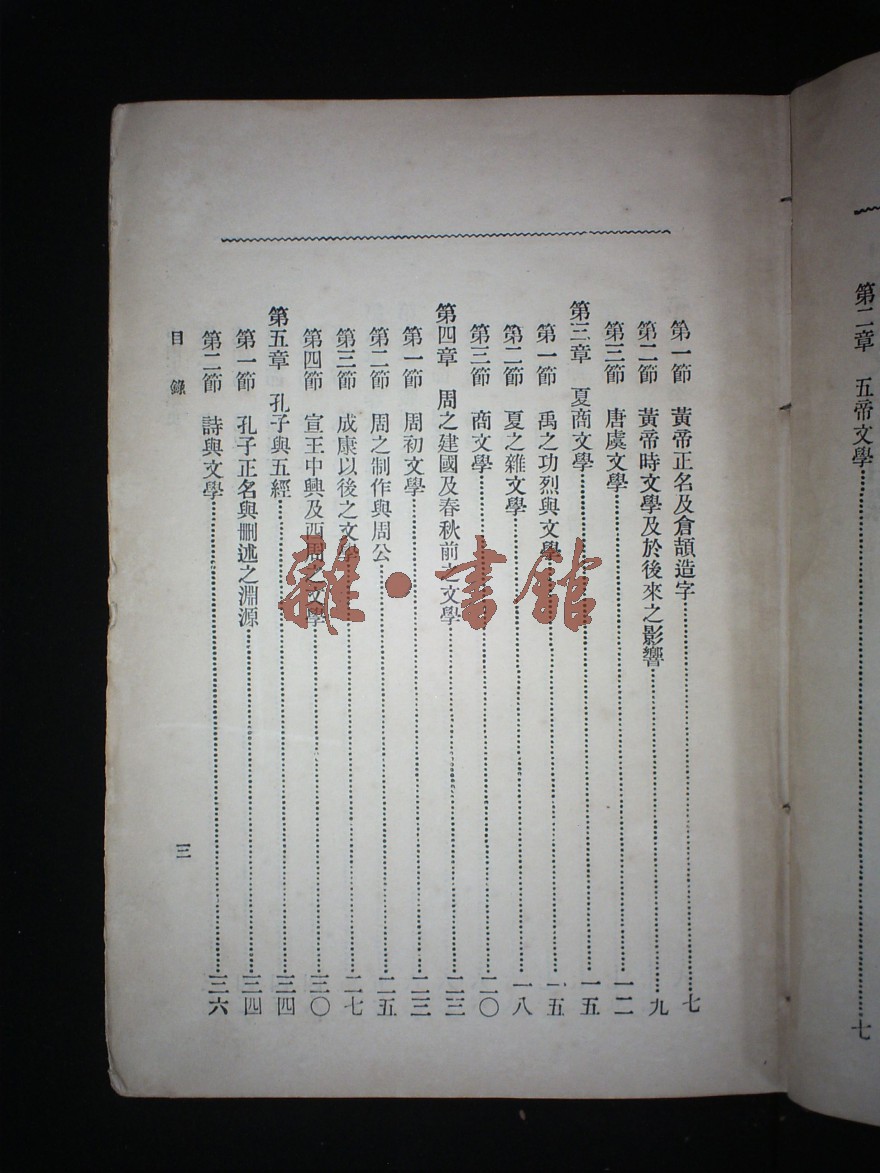 第二章　五帝文學………七
第一節　黃帝正名及倉頡造字………七
第二節　黃帝時文學及於後來之影響………九
第三節　唐虞文學………一二
第三章　夏商文學………一五
第一節　禹之功烈與文學………一五
第二節　夏之雜文學………一八
第三節　商文學………二〇
第四章　周之建國及春秋前之文學………二三
第一節　周初文學………二三
第二節　周之制作與周公………二五
第三節　成康以後之文學………二七
第四節　宣王中興及西周之文學………三〇
第五章　孔子與五經………三四
第一節　孔子正名與刪述之淵源………三四
第二節　詩與文學………三六
目錄
三
雜·書館